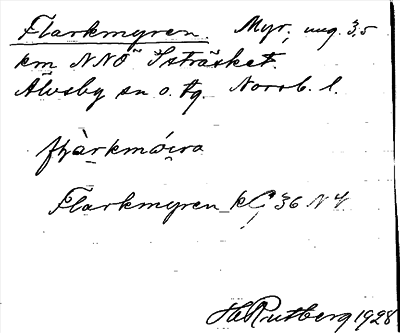 Flarkmyren. Myr, ung. 3,5
km NNÖ Isträsket.
Älvsby sn o. tg. Norrb. l.
Flarkmyren k G 36 N 4
H. Rutberg 1928